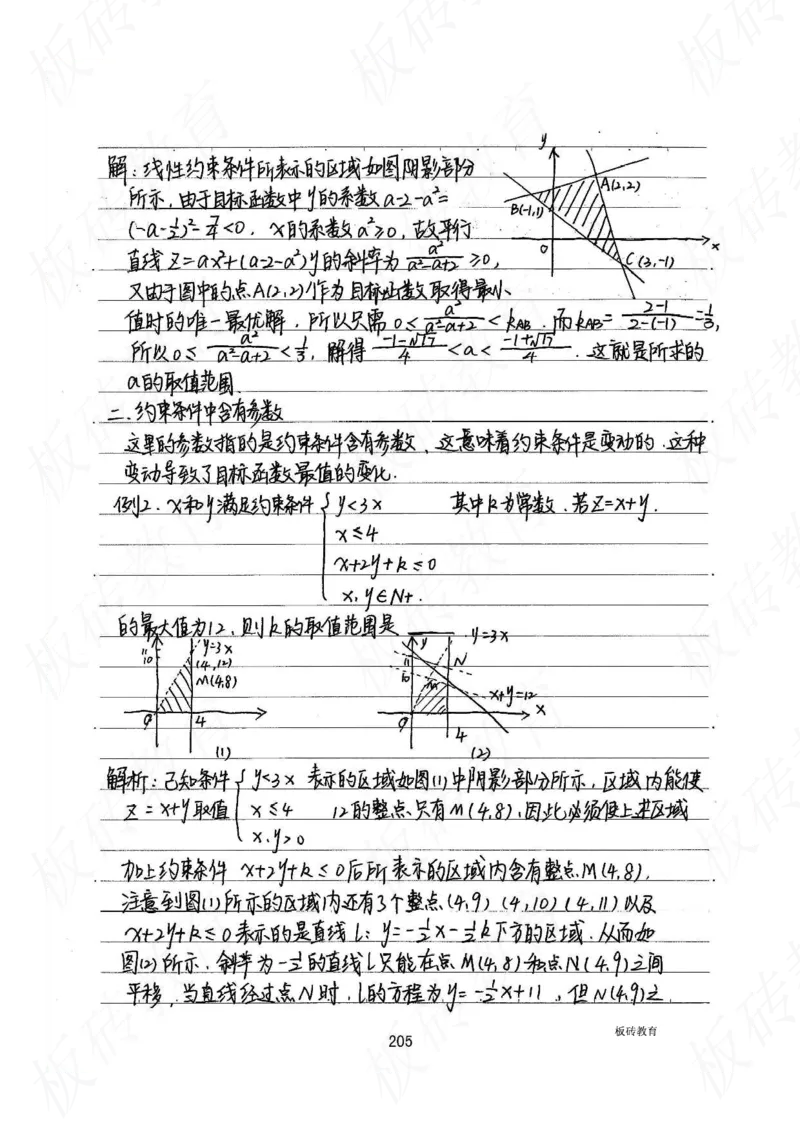 解:线性约束条件所表示的区域如图阴影部分
所示,由于目标函数中y的系数a-2-a²=
(-a-½)²-7/4<0,x的系数a²≥0,故平行
直线Z=ax²+(a-2-a²)y的斜率为 a²/(a²-a+2) ≥0,
又由于图中的点A(2,2)作为目标函数取得最小
值时的唯一最优解,所以只需 0≤ a²/(a²-a+2) <kAB.而kAB= (2-1)/(2-(-1)) =1/3,
所以0≤ a²/(a²-a+2) <1/3,解得 (-1-√17)/4 <a< (-1+√17)/4 .这就是所求的
a的取值范围.
y
A(2,2)
B(-1,1)
0
x
C(3,-1)
二.约束条件中含有参数
这里的参数指的是约束条件含有参数,这意味着约束条件是变动的.这种
变动导致了目标函数最值的变化.
例2.x和y满足约束条件 { y<3x 其中k为常数.若Z=x+y.
x≤4
x+2y+k≤0
x,y∈N+.
的最大值为12,则k的取值范围是
y=3x
11
10
(4,12)
M(4,8)
0
4
(1)
y
y=3x
11
10
N
M
x+y=12
x
0
4
(2)
解析:已知条件 { y<3x 表示的区域如图(1)中阴影部分所示,区域内能使
Z=x+y取值 x≤4 12的整点只有M(4,8),因此必须使上述区域
x,y>0
加上约束条件 x+2y+k≤0后所表示的区域内含有整点M(4,8).
注意到图(1)所示的区域内还有3个整点(4,9)(4,10)(4,11)以及
x+2y+k≤0表示的是直线l:y=-½x-½k下方的区域.从而如
图(2)所示.斜率为-½的直线l只能在点M(4,8)和点N(4,9)之间
平移,当直线经过点N时,l的方程为y=-½x+11,但N(4,9)之
205
板砖教育